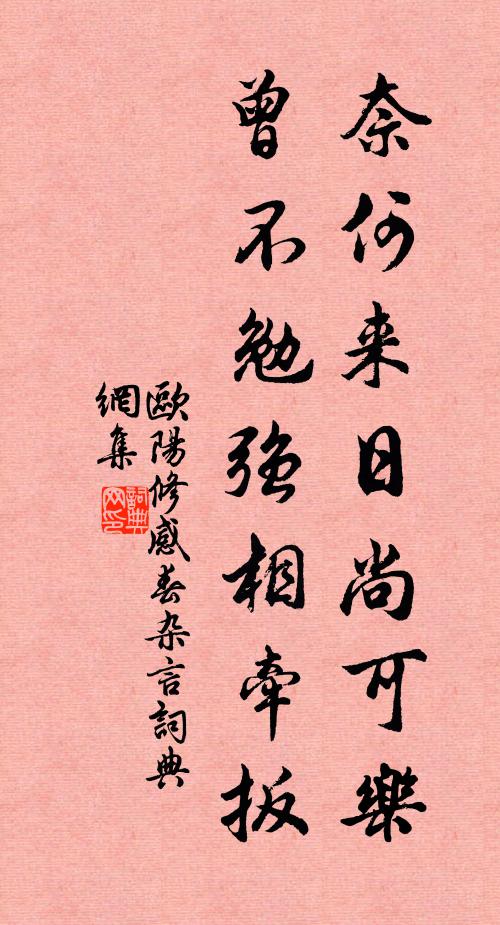 奈何来日尚可樂
曾不勉強相牽扳
歐陽修感春杂言詞典
網集
詞典
网印